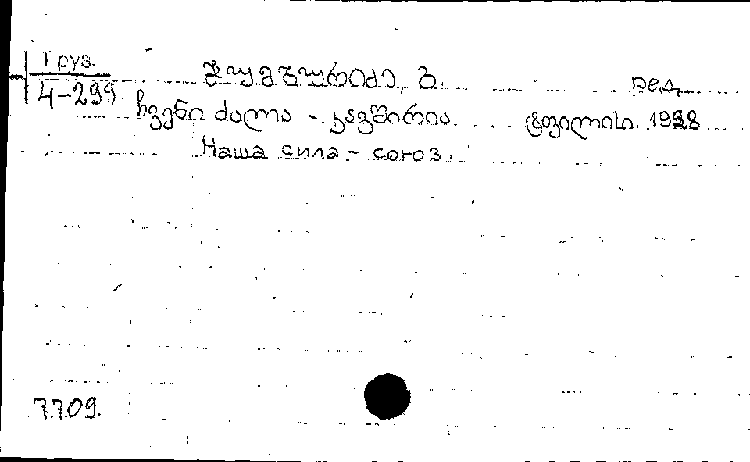 Груз.
4-299
ჯუმბურიძე, ბ. ред.
ჩვენი ძალა - კავშირია. ტფილისი. 1928
Наша сила - союз.
7.709.